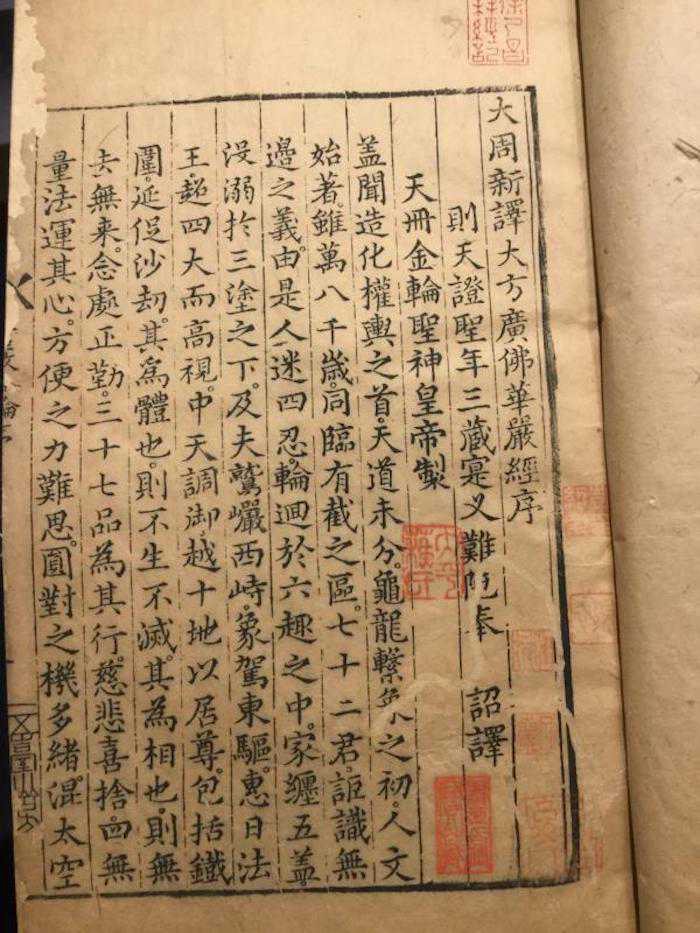 大周新譯大方廣佛華嚴經序
則天證聖年三藏寔叉難陁奉 詔譯
天冊金輪聖神皇帝製
蓋聞造化權輿之首。天道未分。龜龍繫象之初。人文
始著。雖萬八千歳。同臨有截之區。七十二君。詎識無
邊之義。由是人迷四忍。輪迴於六趣之中。家纒五蓋。
没溺於三塗之下。及夫鷲巖西峙。象駕東驅。惠日法
王。超四大而高視。中天調御。越十地以居尊。包括鐵
圍。延促沙劫。其爲體也。則不生不滅。其為相也。則無
去無来。念處正勤。三十七品為其行。慈悲喜捨。四無
量法運其心。方便之力難思。圓對之機多緒。混太空